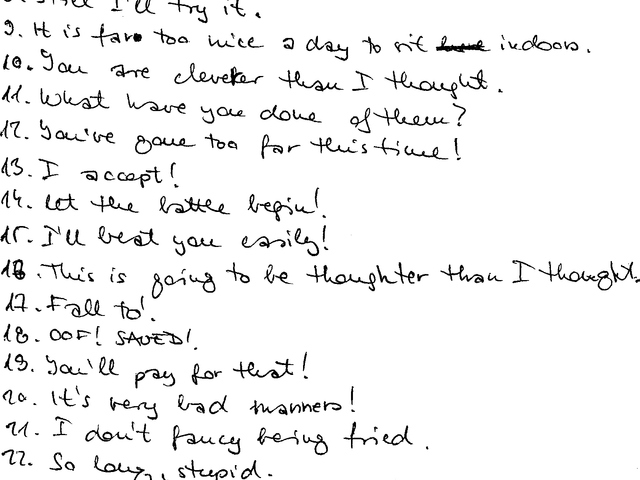 8. Still I'll try it.
9. It is far too nice a day to sit indoors.
10. You are cleverer than I thought.
11. What have you done of them?
12. You've gone too far this time!
13. I accept!
14. Let the battle begin!
15. I'll beat you easily!
16. This is going to be thoughter than I thought.
17. Fall to!
18. OOF! SAVED!
19. You'll pay for that!
20. It's very bad manners!
21. I don't fancy being fried.
22. So long, stupid.